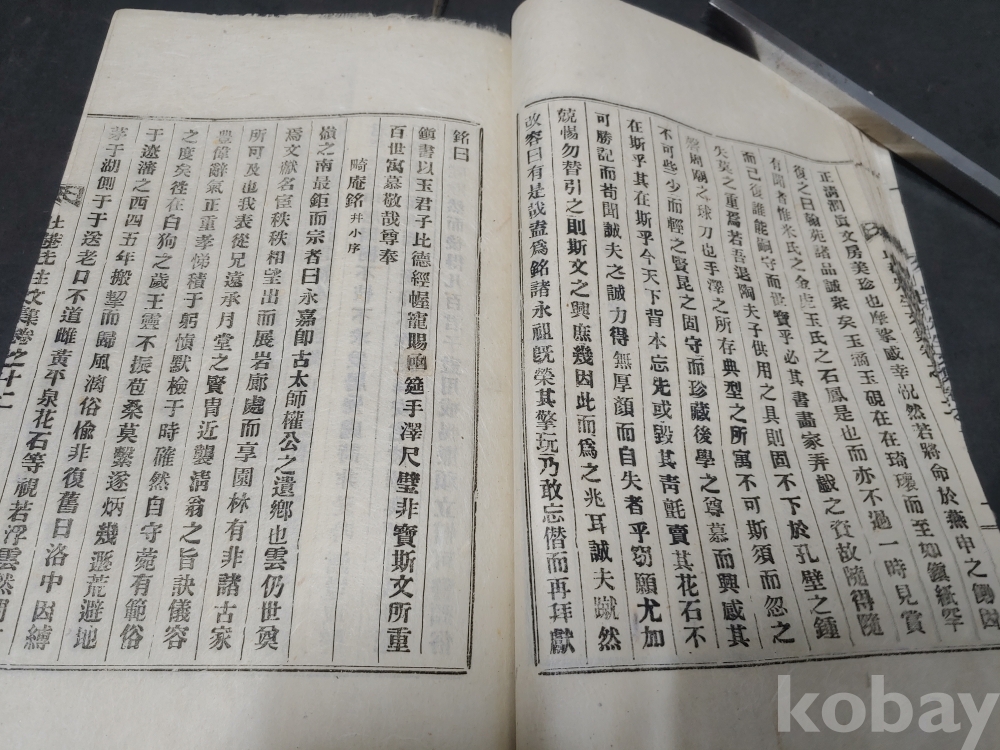 正潤潤眞文房美珍也摩挲戱幸怳然若將命於燕申之側因
復之曰翰苑諸品誠衆矣玉滴玉硯在在琦瓌而至如鎭紙罕
有聞者惟米氏之金 玉氏之石鳳是也而亦不過一時見賞
而已後誰能嗣守而世寶乎必其書畫家弄戱之資故隨得隨
失莫之重焉若吾退陶夫子供用之具則固不下於孔壁之鍾
磬廟之球刀也手澤之所存典型之所寓不可斯須而忽之
不可些少而輕之賢昆之固守而珍藏後學之尊慕而興感其
在斯乎其在斯乎今天下背本忘先或毁其靑氈賣其花石不
可勝記而苟聞誠夫之誠力得無厚顔而自失者乎竊願尤加
兢惕勿替引之則斯文之興庶幾因此而爲之兆耳誠夫蹴然
改容曰有是哉盍爲銘諸永祖旣榮其擎玩乃敢忘僭而再拜獻
銘曰
鎭書以玉君子比德經幄寵賜國筵手澤尺璧非寶斯文所重
百世寓慕敬哉尊奉
畸庵銘 幷小序
嶺之南最鉅而宗者曰永嘉卽古太師權公之遺鄕也雲仍世奠
焉文獻名宦秩秩相望出而展岩廊處而享園林有非諸古家
所可及也我表從兄遠承月堂之賢冑近襲淸翁之旨訣儀容
豊偉辭氣正重孝悌積于躬愼默檢于時確然自守菀有範俗
之度矣粤在白狗之歲王靈不振苞桑莫繫遂炳幾遯荒避地
于遼瀋之西四五年搬挈而歸風漓俗偸非復舊日洛中因縛
茅于湖側于于送老口不道雌黃平泉花石等視若浮雲然間
先生文集卷之十二
kobay